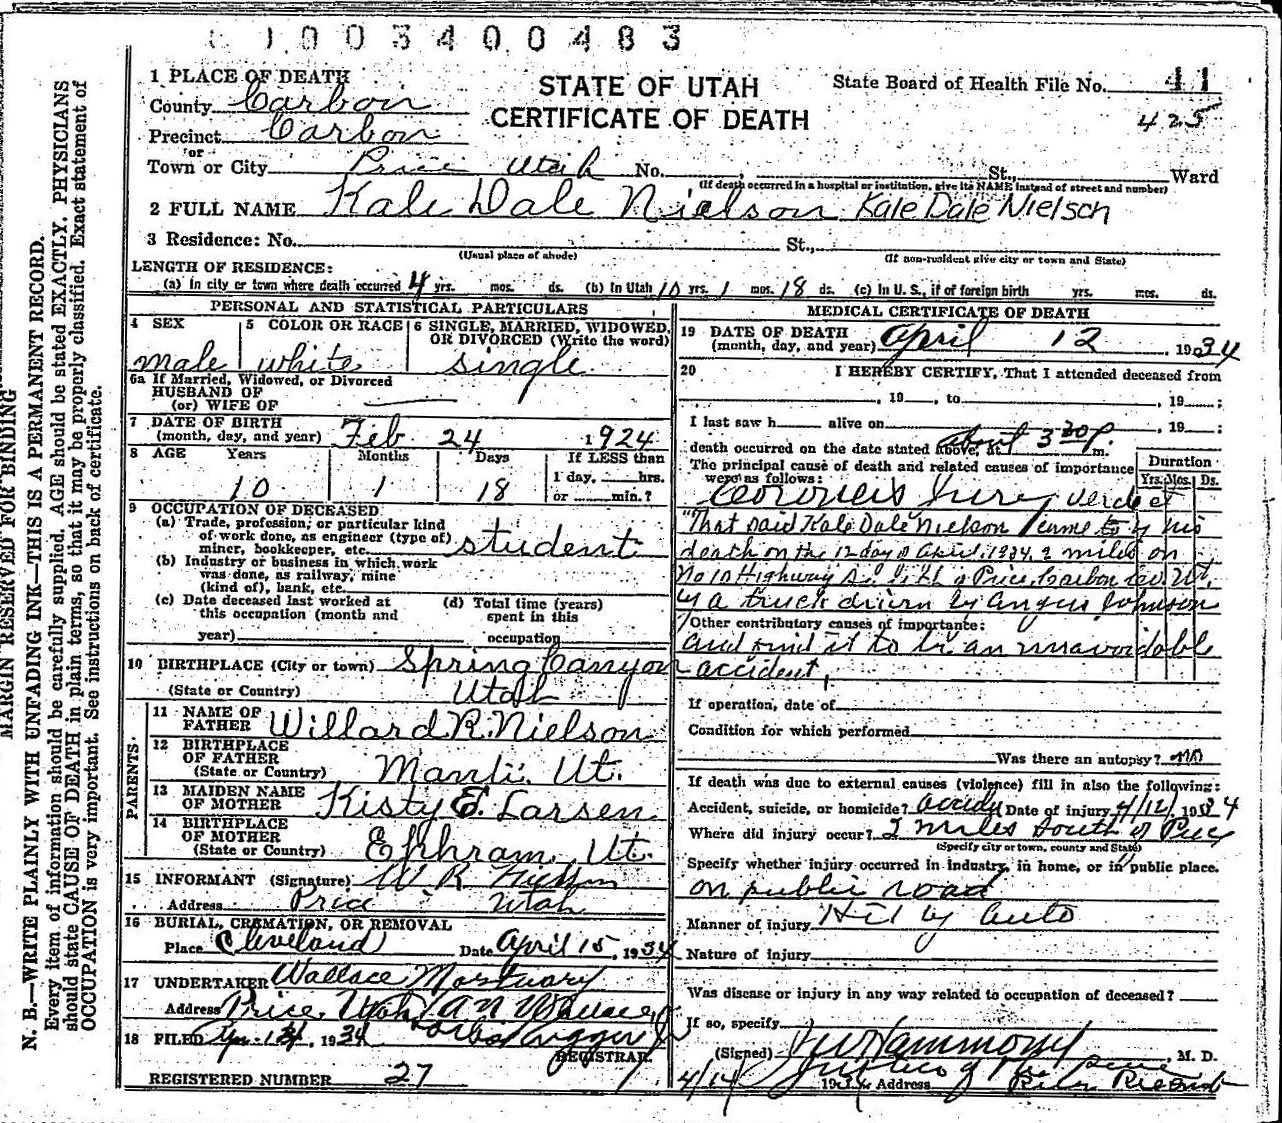 C 1 0 0 3 4 0 0 4 8 3
MARGIN RESERVED FOR BINDING
N. B.—WRITE PLAINLY WITH UNFADING INK—THIS IS A PERMANENT RECORD.
Every item of information should be carefully supplied. AGE should be stated EXACTLY. PHYSICIANS
should state CAUSE OF DEATH in plain terms, so that it may be properly classified. Exact statement of
OCCUPATION is very important. See instructions on back of certificate.
STATE OF UTAH
CERTIFICATE OF DEATH
State Board of Health File No. 41
425
1 PLACE OF DEATH
County Carbon
Precinct Carbon
or
Town or City Price Utah No. St., Ward
(If death occurred in a hospital or institution, give its NAME instead of street and number)
2 FULL NAME Kale Dale Nielson Kale Dale Nielson
3 Residence: No. St.,
(Usual place of abode) (If non-resident give city or town and State)
LENGTH OF RESIDENCE:
(a) In city or town where death occurred 4 yrs. mos. ds. (b) In Utah 10 yrs. 1 mos. 18 ds. (c) In U. S., if of foreign birth yrs. mos. ds.
PERSONAL AND STATISTICAL PARTICULARS
4 SEX 5 COLOR OR RACE 6 SINGLE, MARRIED, WIDOWED,
OR DIVORCED (Write the word)
male white single
6a If Married, Widowed, or Divorced
HUSBAND OF
(or) WIFE OF
7 DATE OF BIRTH
(month, day, and year) Feb 24 1924
8 AGE Years Months Days If LESS than
1 day, hrs.
10 1 18 or min.?
9 OCCUPATION OF DECEASED
(a) Trade, profession, or particular kind
of work done, as engineer (type of)
miner, bookkeeper, etc. student
(b) Industry or business in which work
was done, as railway, mine
(kind of), bank, etc.
(c) Date deceased last worked at (d) Total time (years)
this occupation (month and spent in this
year) occupation
10 BIRTHPLACE (City or town) Spring Canyon
(State or Country) Utah
PARENTS
11 NAME OF
FATHER Willard R. Nielson
12 BIRTHPLACE
OF FATHER
(State or Country) Manti. Ut.
13 MAIDEN NAME
OF MOTHER Kisty E. Larsen
14 BIRTHPLACE
OF MOTHER
(State or Country) Ephram, Ut.
15 INFORMANT (Signature) W R Nielson
Address Price Utah
16 BURIAL, CREMATION, OR REMOVAL
Place Cleveland Date April 15, 1934
17 UNDERTAKER Wallace Mortuary
Address Price, Utah AN Wallace
18 FILED 1934
REGISTRAR.
REGISTERED NUMBER 27
MEDICAL CERTIFICATE OF DEATH
19 DATE OF DEATH
(month, day, and year) April 12, 1934
20 I HEREBY CERTIFY, That I attended deceased from
, 19 , to , 19 ;
I last saw h alive on , 19 ;
death occurred on the date stated above, at about 3 30 P. m.
The principal cause of death and related causes of importance
were as follows:
Duration
Yrs. Mos. Ds.
Coroners Jury verdict
"That said Kale Dale Nielson came to his
death on the 12 day of April, 1934, 2 miles on
No 10 Highway So. of Price, Carbon Co. Ut,
by a truck driven by Angus Johnson
Other contributory causes of importance:
and find it to be an unavoidable
accident,
If operation, date of
Condition for which performed
Was there an autopsy? no
If death was due to external causes (violence) fill in also the following:
Accident, suicide, or homicide? Date of injury 4/12/, 1934
Where did injury occur? 2 miles South of Price
(Specify city or town, county and State)
Specify whether injury occurred in industry, in home, or in public place.
on public road
Manner of injury Hit by Auto
Nature of injury
Was disease or injury in any way related to occupation of deceased?
If so, specify
(Signed) Hammond, M. D.
4/14 1934 Address Justice of the Peace